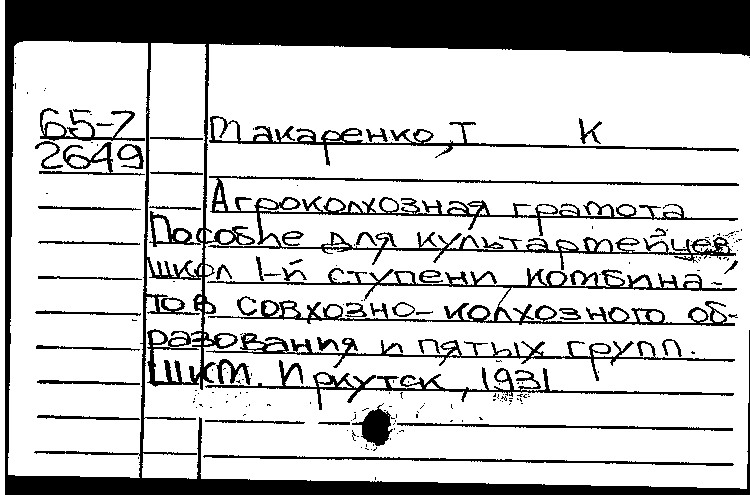 65-7 Макаренко, Т К
2649
Агроколхозная грамота
Пособие для культармейцев,
школ 1-й ступени комбина-
тов совхозно-колхозного об-
разования и пятых групп.
ШКМ. Иркутск, 1931